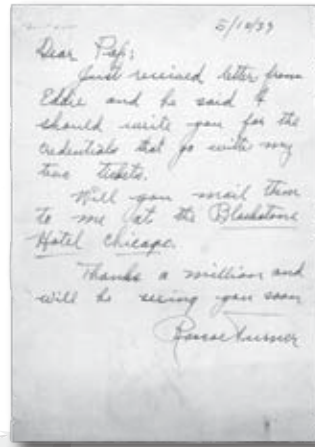 5/10/39
Dear Pop:
Just received letter from
Eddie and he said I
should write you for the
credentials that go with my
two tickets.
Will you mail them
to me at the Blackstone
Hotel Chicago.
Thanks a million and
will be seeing you soon
Roscoe Turner